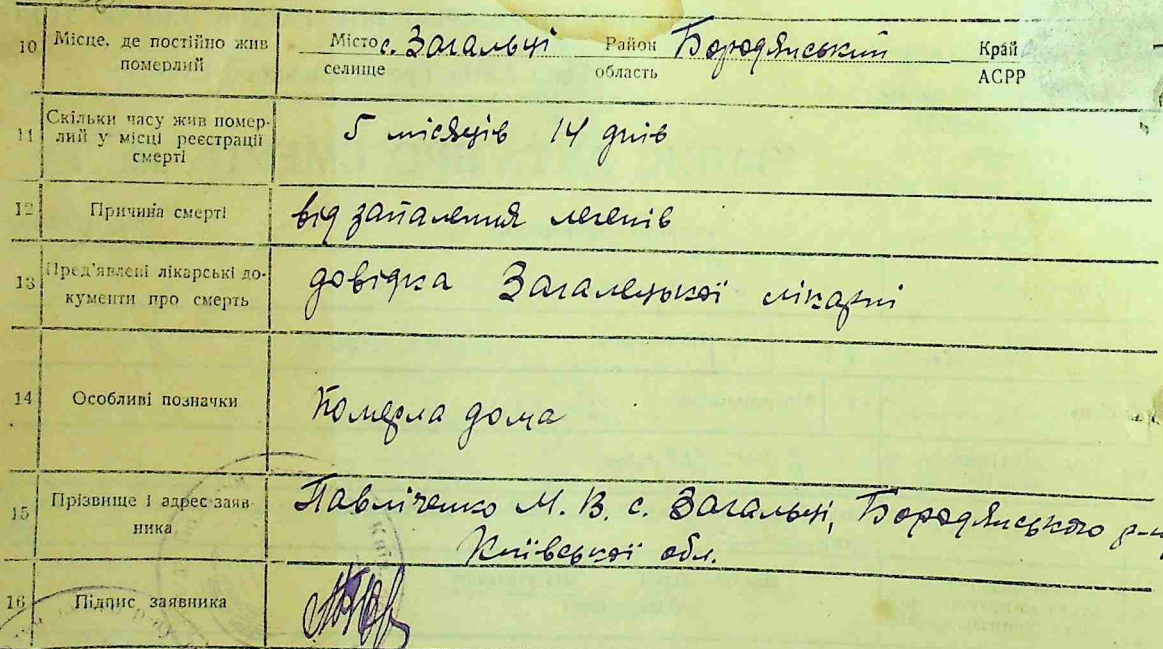 10 Місце, де постійно жив померлий
Місто с. Загальці Район Бородянський Край
селище область АСРР
11 Скільки часу жив помер-
лий у місці реєстрації
смерті
5 місяців 14 днів
12 Причина смерті
від запалення легенів
13 Пред'явлені лікарські до-
кументи про смерть
довідка Загалецької лікарні
14 Особливі позначки
Померла дома
15 Прізвище і адрес заяв
ника
Павліченко М. В. с. Загальці, Бородянського р-ну
Київської обл.
16 Підпис заявника